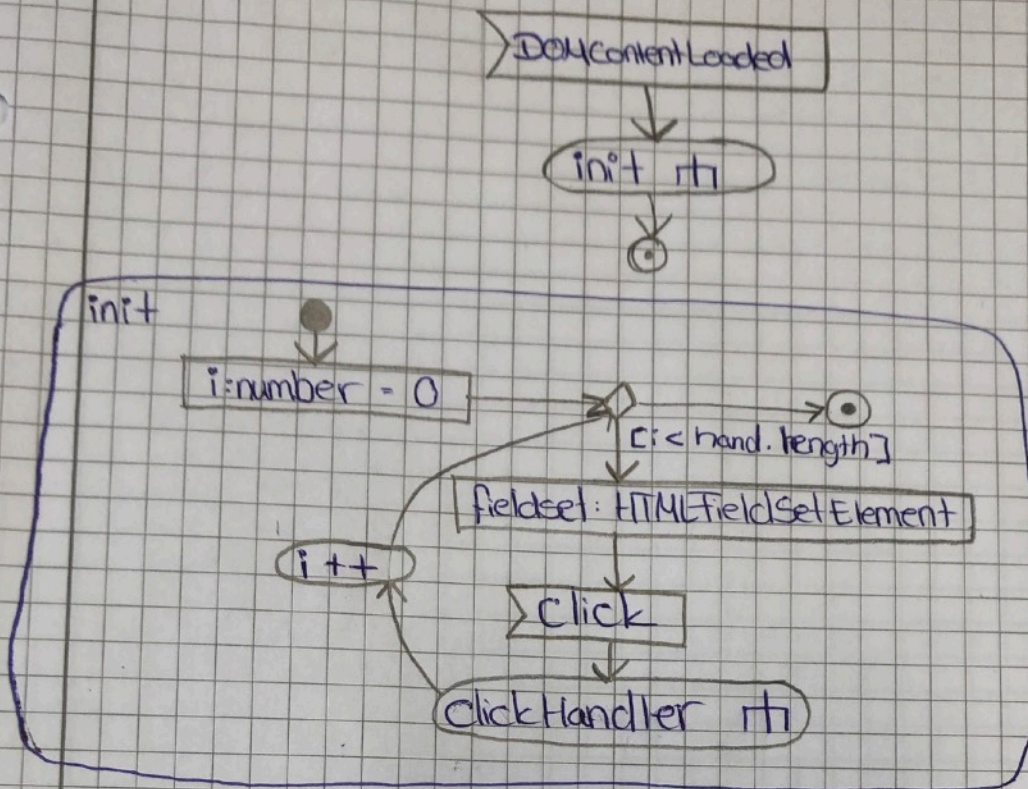 DOMContentLoaded
init
init
i:number = 0
[i < hand.length]
fieldset: HTMLFieldSetElement
i ++
Click
clickHandler